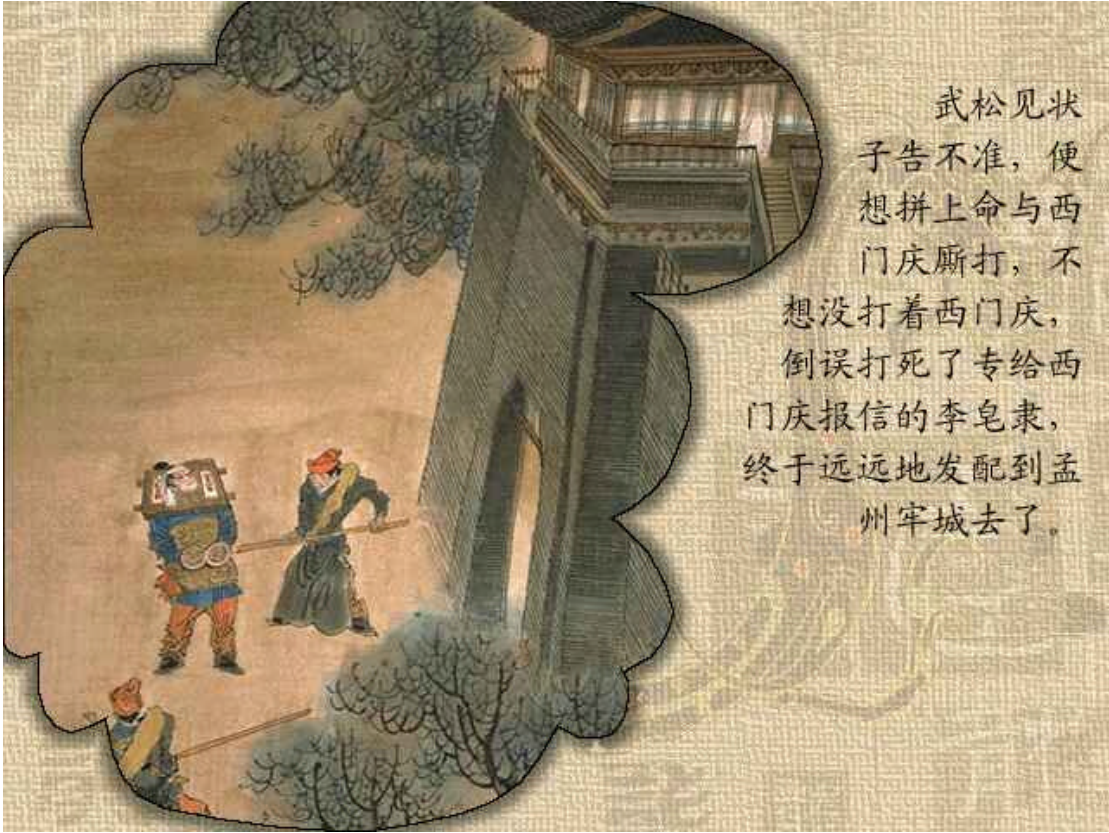 武松见状
子告不准，便
想拼上命与西
门庆厮打，不
想没打着西门庆，
倒误打死了专给西
门庆报信的李皂隶，
终于远远地发配到孟
州牢城去了。